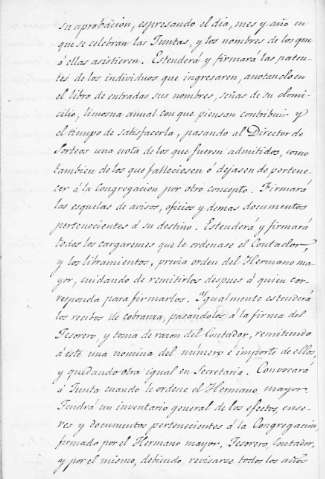 su aprobacion, espresando el dia, mes y año en
que se celebran las Juntas, y los nombres de los que
á ellas asistieren. Estenderá y firmará las paten-
tes de los individuos que ingresaren, anotando en
el libro de entradas sus nombres, señas de su domi-
cilio, limosna anual con que piensan contribuir y
el tiempo de satisfacerla, pasando al Director de
Sorteos una nota de los que fueren admitidos, como
tambien de los que falleciesen ó dejasen de pertene-
cer á la Congregacion por otro concepto. Firmará
las esquelas de avisos, oficios y demas documentos
pertenecientes á su destino. Estenderá y firmará
todos los cargaremes que le ordenare el Contador,
y los libramientos, previa orden del Hermano ma-
yor, cuidando de remitirlos despues á quien cor-
responda para firmarlos. Igualmente estenderá
los recibos de cobranza, pasandolos á la firma del
Tesorero, y toma de razon del Contador, remitiendo
á este una nomina del número é importe de ellos,
y quedando otra igual en Secretaria. Convocará
á Junta cuando le ordene el Hermano mayor.
Tendrá un inventario general de los efectos, ense-
res y documentos pertenecientes á la Congregacion,
firmado por el Hermano mayor, Tesorero, Contador,
y por el mismo, debiendo revisarse todos los años